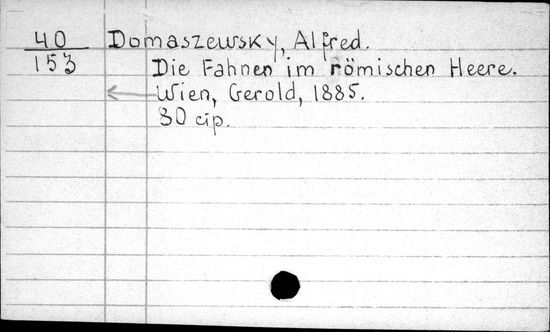 40 Domaszewsky, Alfred.
153 Die Fahnen im römischen Heere.
Wien, Gerold, 1885.
80 стр.